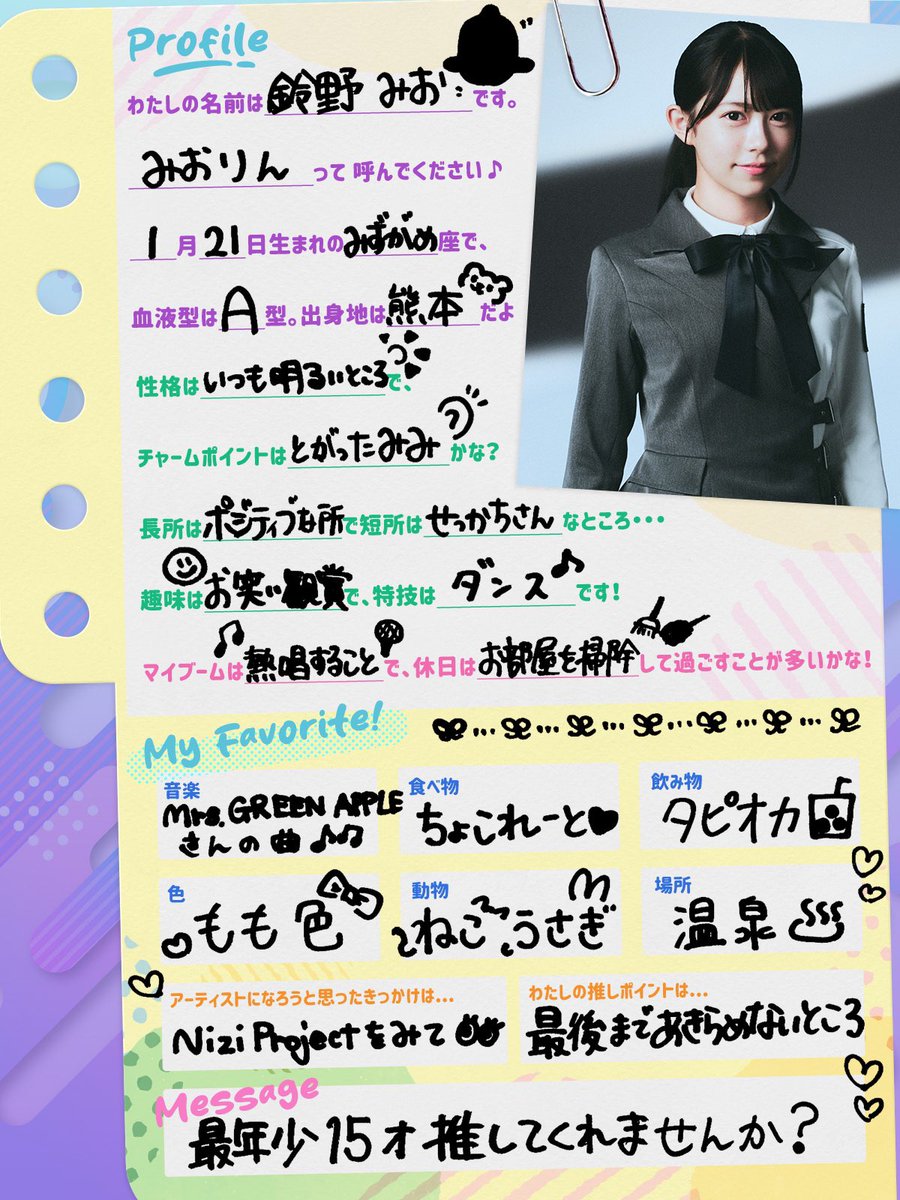 Profile
わたしの名前は鈴野 みおです。
みおりんって 呼んでください♪
1月21日生まれのみずがめ座で、
血液型はA型。出身地は熊本だよ
性格はいつも明るいところで、
チャームポイントはとがったみみかな?
長所はポジティブな所で短所はせっかちさんなところ・・・
趣味はお笑い観賞で、特技はダンス♪です!
マイブームは熱唱することで、休日はお部屋を掃除して過ごすことが多いかな!
My Favorite!
音楽
Mrs. GREEN APPLE
さんの曲♪♪♪
食べ物
ちょこれーと♥
飲み物
タピオカ
色
もも色
動物
ねこ うさぎ
場所
温泉
アーティストになろうと思ったきっかけは...
Nizi Projectをみて
わたしの推しポイントは...
最後まであきらめないところ
Message
最年少15才推してくれませんか?